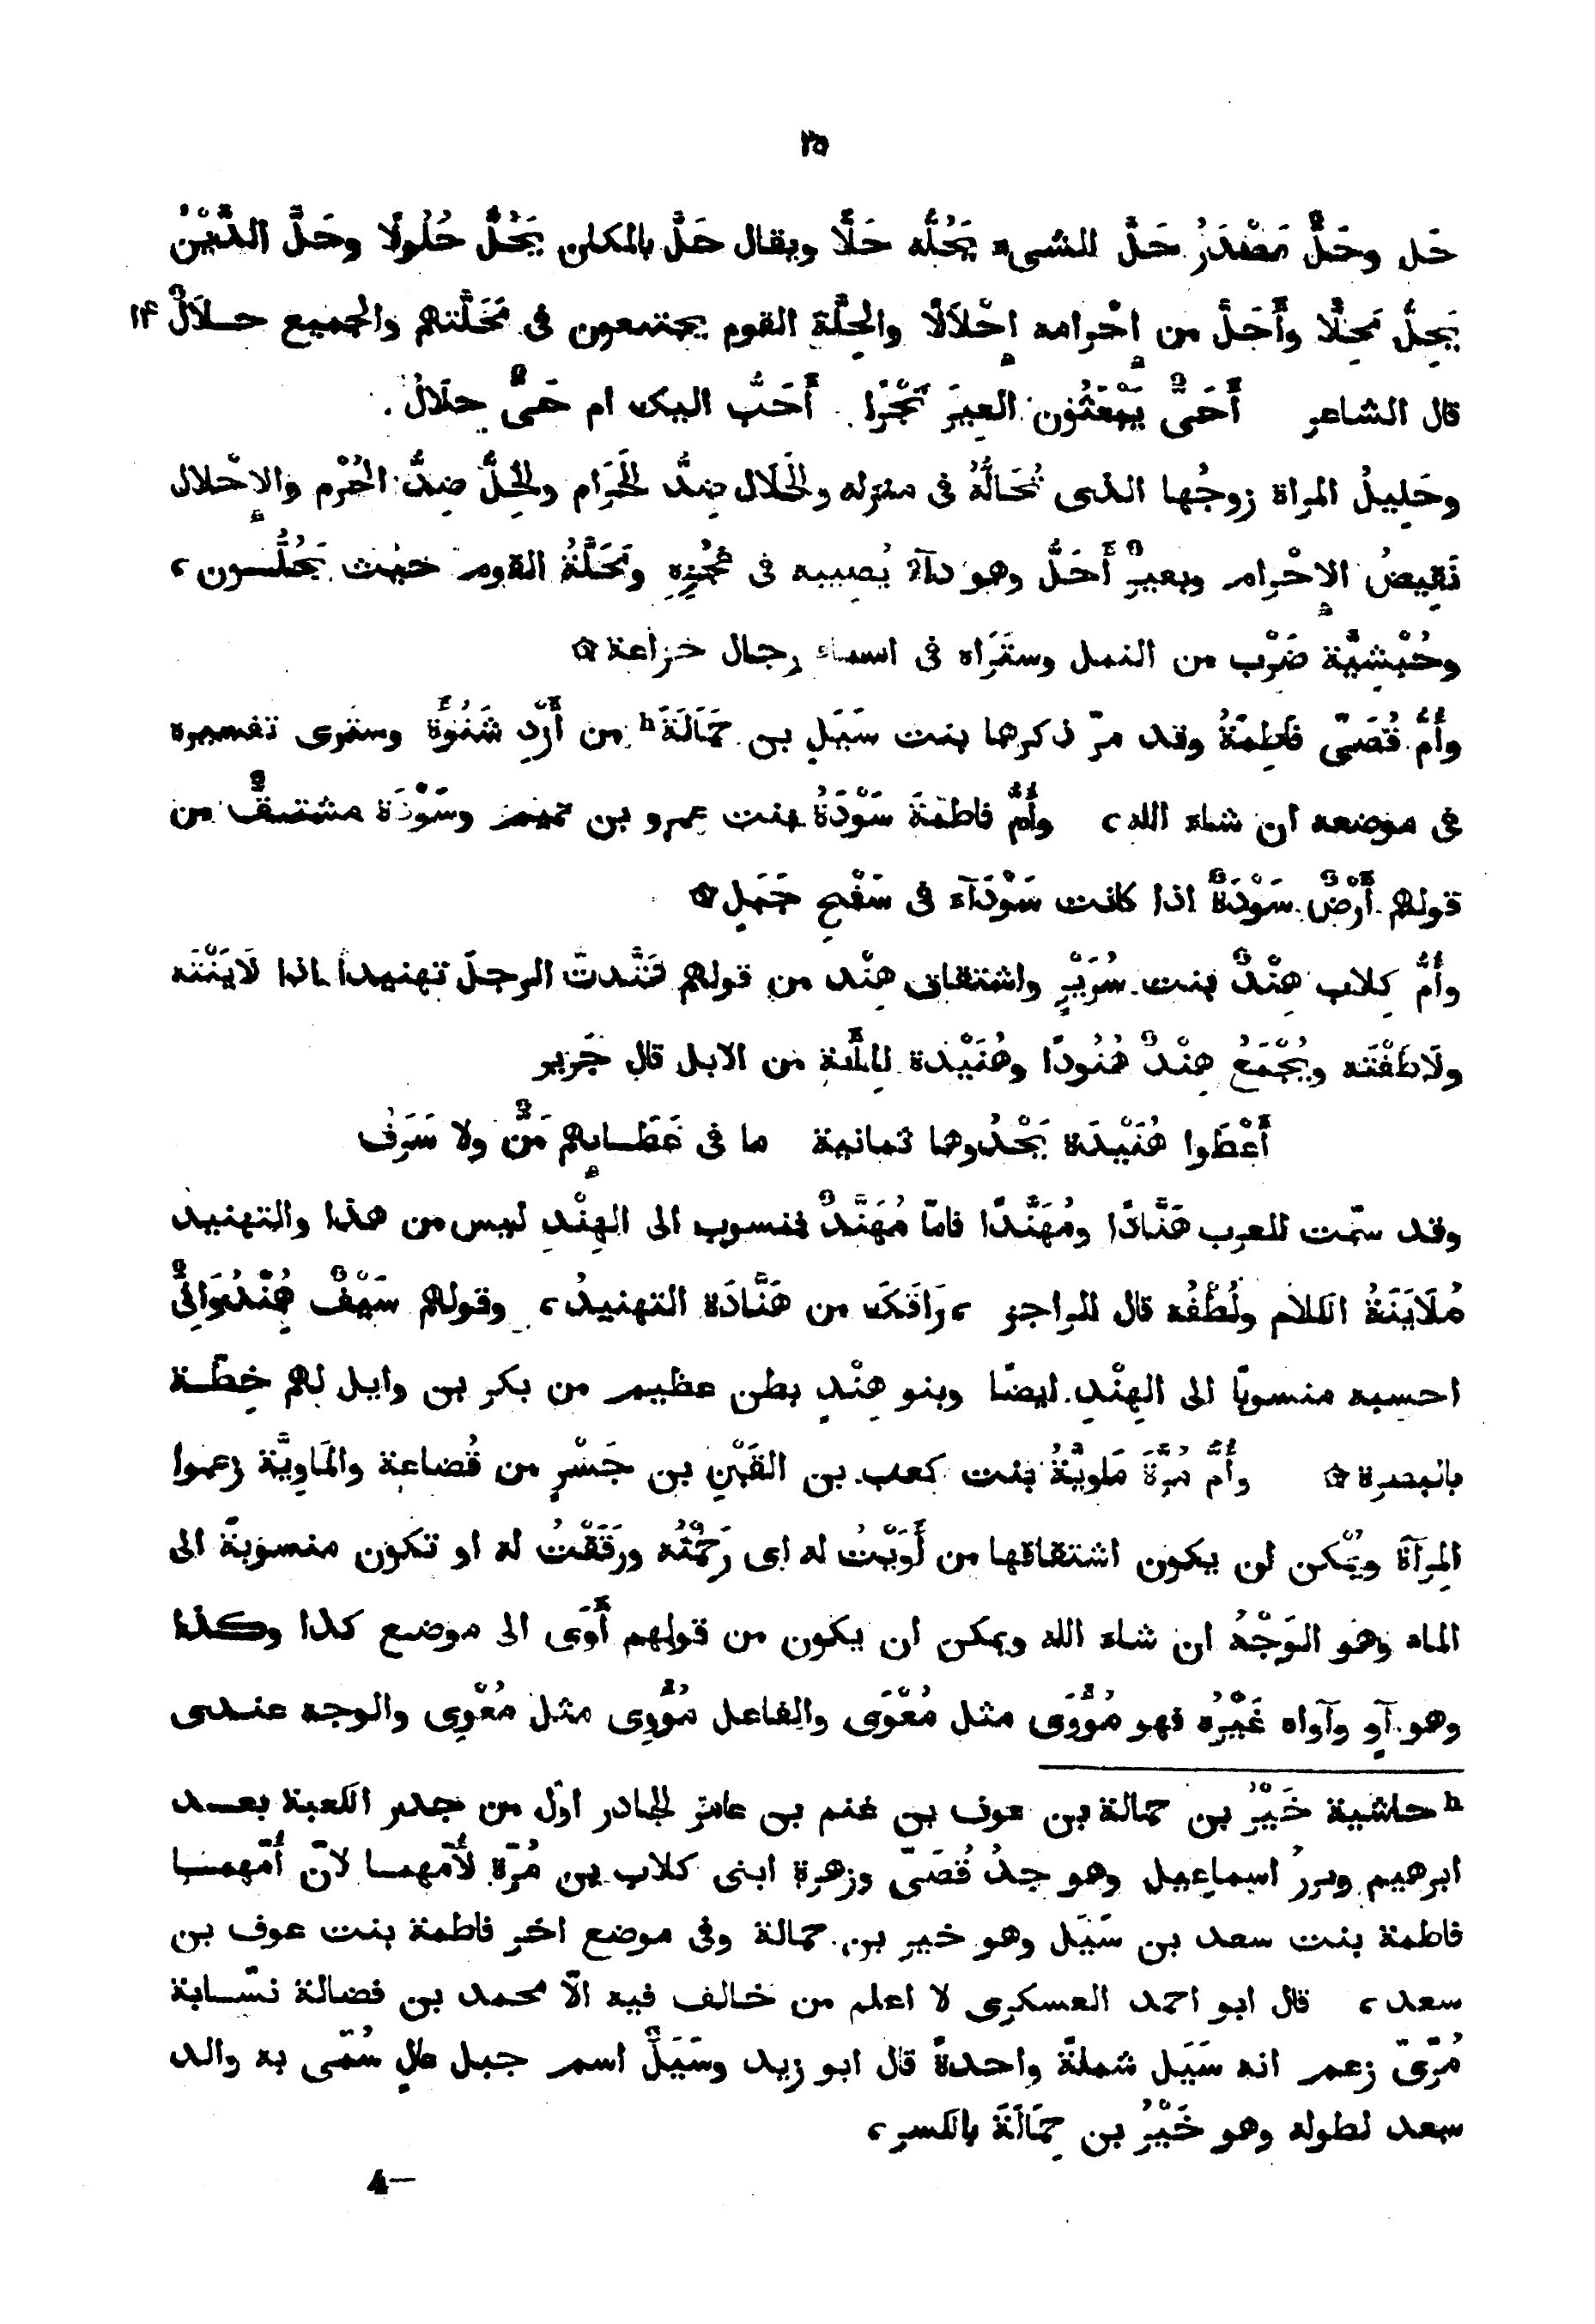 ٢٥
حَل وحَلٌّ مَصْدَرُ حَلَّ الشىء يَحُلُّه حَلًّا ويقال حَلَّ بالمكان يَحُلُّ حُلُولًا وحَلَّ الدَّيْنُ
يَحِلُّ مَحِلًّا وأَحَلَّ من إِحْرامه إِحْلَالًا والحِلَّة القوم يجتمعون فى مَحَلَّتهم والجميع حِلَالٌ ١٤
قال الشاعر أَحَىٌّ يَبْعَثُون العِيرَ تَجْرًا أَحَبُّ اليك ام حَىٌّ حِلَالُ
وحَلِيلُ المراة زوجُها الذى تُحَالُّهُ فى منزله والحَلَال ضِدُّ الحَرَام والحِلُّ ضِدُّ الحُرْم والإِحْلال
نَقِيضُ الإِحْرام وبعيرٌ أَحَلُّ وهو دآءٌ يُصِيبه فى عَجُزِهِ ومَحَلَّةُ القوم حَيْث يَحُلُّون،
وحُبْشِيَّة ضَرْب من النمل وستَرَاه فى اسماء رجال خزاعة ۞
وأُمُّ قُصَىّ فَاطِمَةُ وقد مرّ ذكرها بنت سَيَلِ بن حَمَالَةَ h من أَزْدِ شَنُوَّةَ وسترى تفسيره
فى موضعه ان شاء الله، وأُمُّ فاطمَةَ سَوْدَةُ بنت عمرو بن تميم وسَوْدَة مشتقٌّ من
قولهم أَرْضٌ سَوْدَةٌ اذا كانت سَوْدَآء فى سَفْحِ جَبَلٍ ۞
وأُمُّ كِلاب هِنْدٌ بنت سُرَيْرٍ واشتقاق هِنْد من قولهم هَنَّدتُ الرجلَ تهنيدا اذا لَايَنْتَه
ولَاطَفْتَه ويُجْمَعُ هِنْدٌ هُنُودًا وهُنَيْدة المائة من الابل قال جَرير
أَعْطَوا هُنَيْدَة يَحْدُوها ثمانية ما فى عَطَايِهِم مَنٌّ ولا سَرَفُ
وقد سمّت العرب هَنَّادًا ومُهَنَّدًا فامّا مُهَنَّدٌ فمنسوب الى الهِنْدِ ليس من هذا والتهنيد
مُلَايَنَةُ الكلام ولُطْفُه قال الراجز، رَاقَكَ من هَنَّادَة التهنيدُ، وقولهم سَيْفٌ هِنْدُوَانِىٌّ
احسبه منسوبًا الى الهِنْدِ ايضًا وبنو هِنْدٍ بطن عظيم من بكر بن وايل لهم خِطّة
بالبصرة ۞ وأُمُّ مُرَّةَ مَاوِيَّةُ بنت كعب بن القَيْنِ بن جَسْرٍ من قُضاعة والمَاوِيَّة زعموا
المِرآة ويُمْكن ان يكون اشتقاقها من أَوَيْتُ له اى رَحِمْتُه ورَقَقْتُ له او تكون منسوبةً الى
الماء وهو الوَجْهُ ان شاء الله ويمكن ان يكون من قولهم أَوَى الى موضع كذا وكذا
وهو آوٍ وآواه غَيْرُه فهو مُؤْوًى مثل مُعْوًى والفاعل مُؤْوِى مثل مُعْوِى والوجه عندى
h حاشية خَيْرُ بن حمالة بن عوف بن غنم بن عامر الجادر اوّل من جدر الكعبة بعد
ابرهيم وبرز اسماعيل وهو جدُ قُصَىّ وزهرة ابنى كلاب بن مُرّة لأُمّهما لانّ أُمّهما
فاطمة بنت سعد بن سَيَل وهو خير بن حمالة وفى موضع اخر فاطمة بنت عوف بن
سعد، قال ابو احمد العسكرى لا اعلم من خالف فيه الّا محمد بن فضالة نسّابة
مُرّىّ زعم انه سَيَل شملةً واحدةً قال ابو زيد وسَيَلٌ اسم جبل عالٍ سُمّى به والد
سعد لطوله وهو خَيْرُ بن حِمَالَةَ بالكسر،
4—